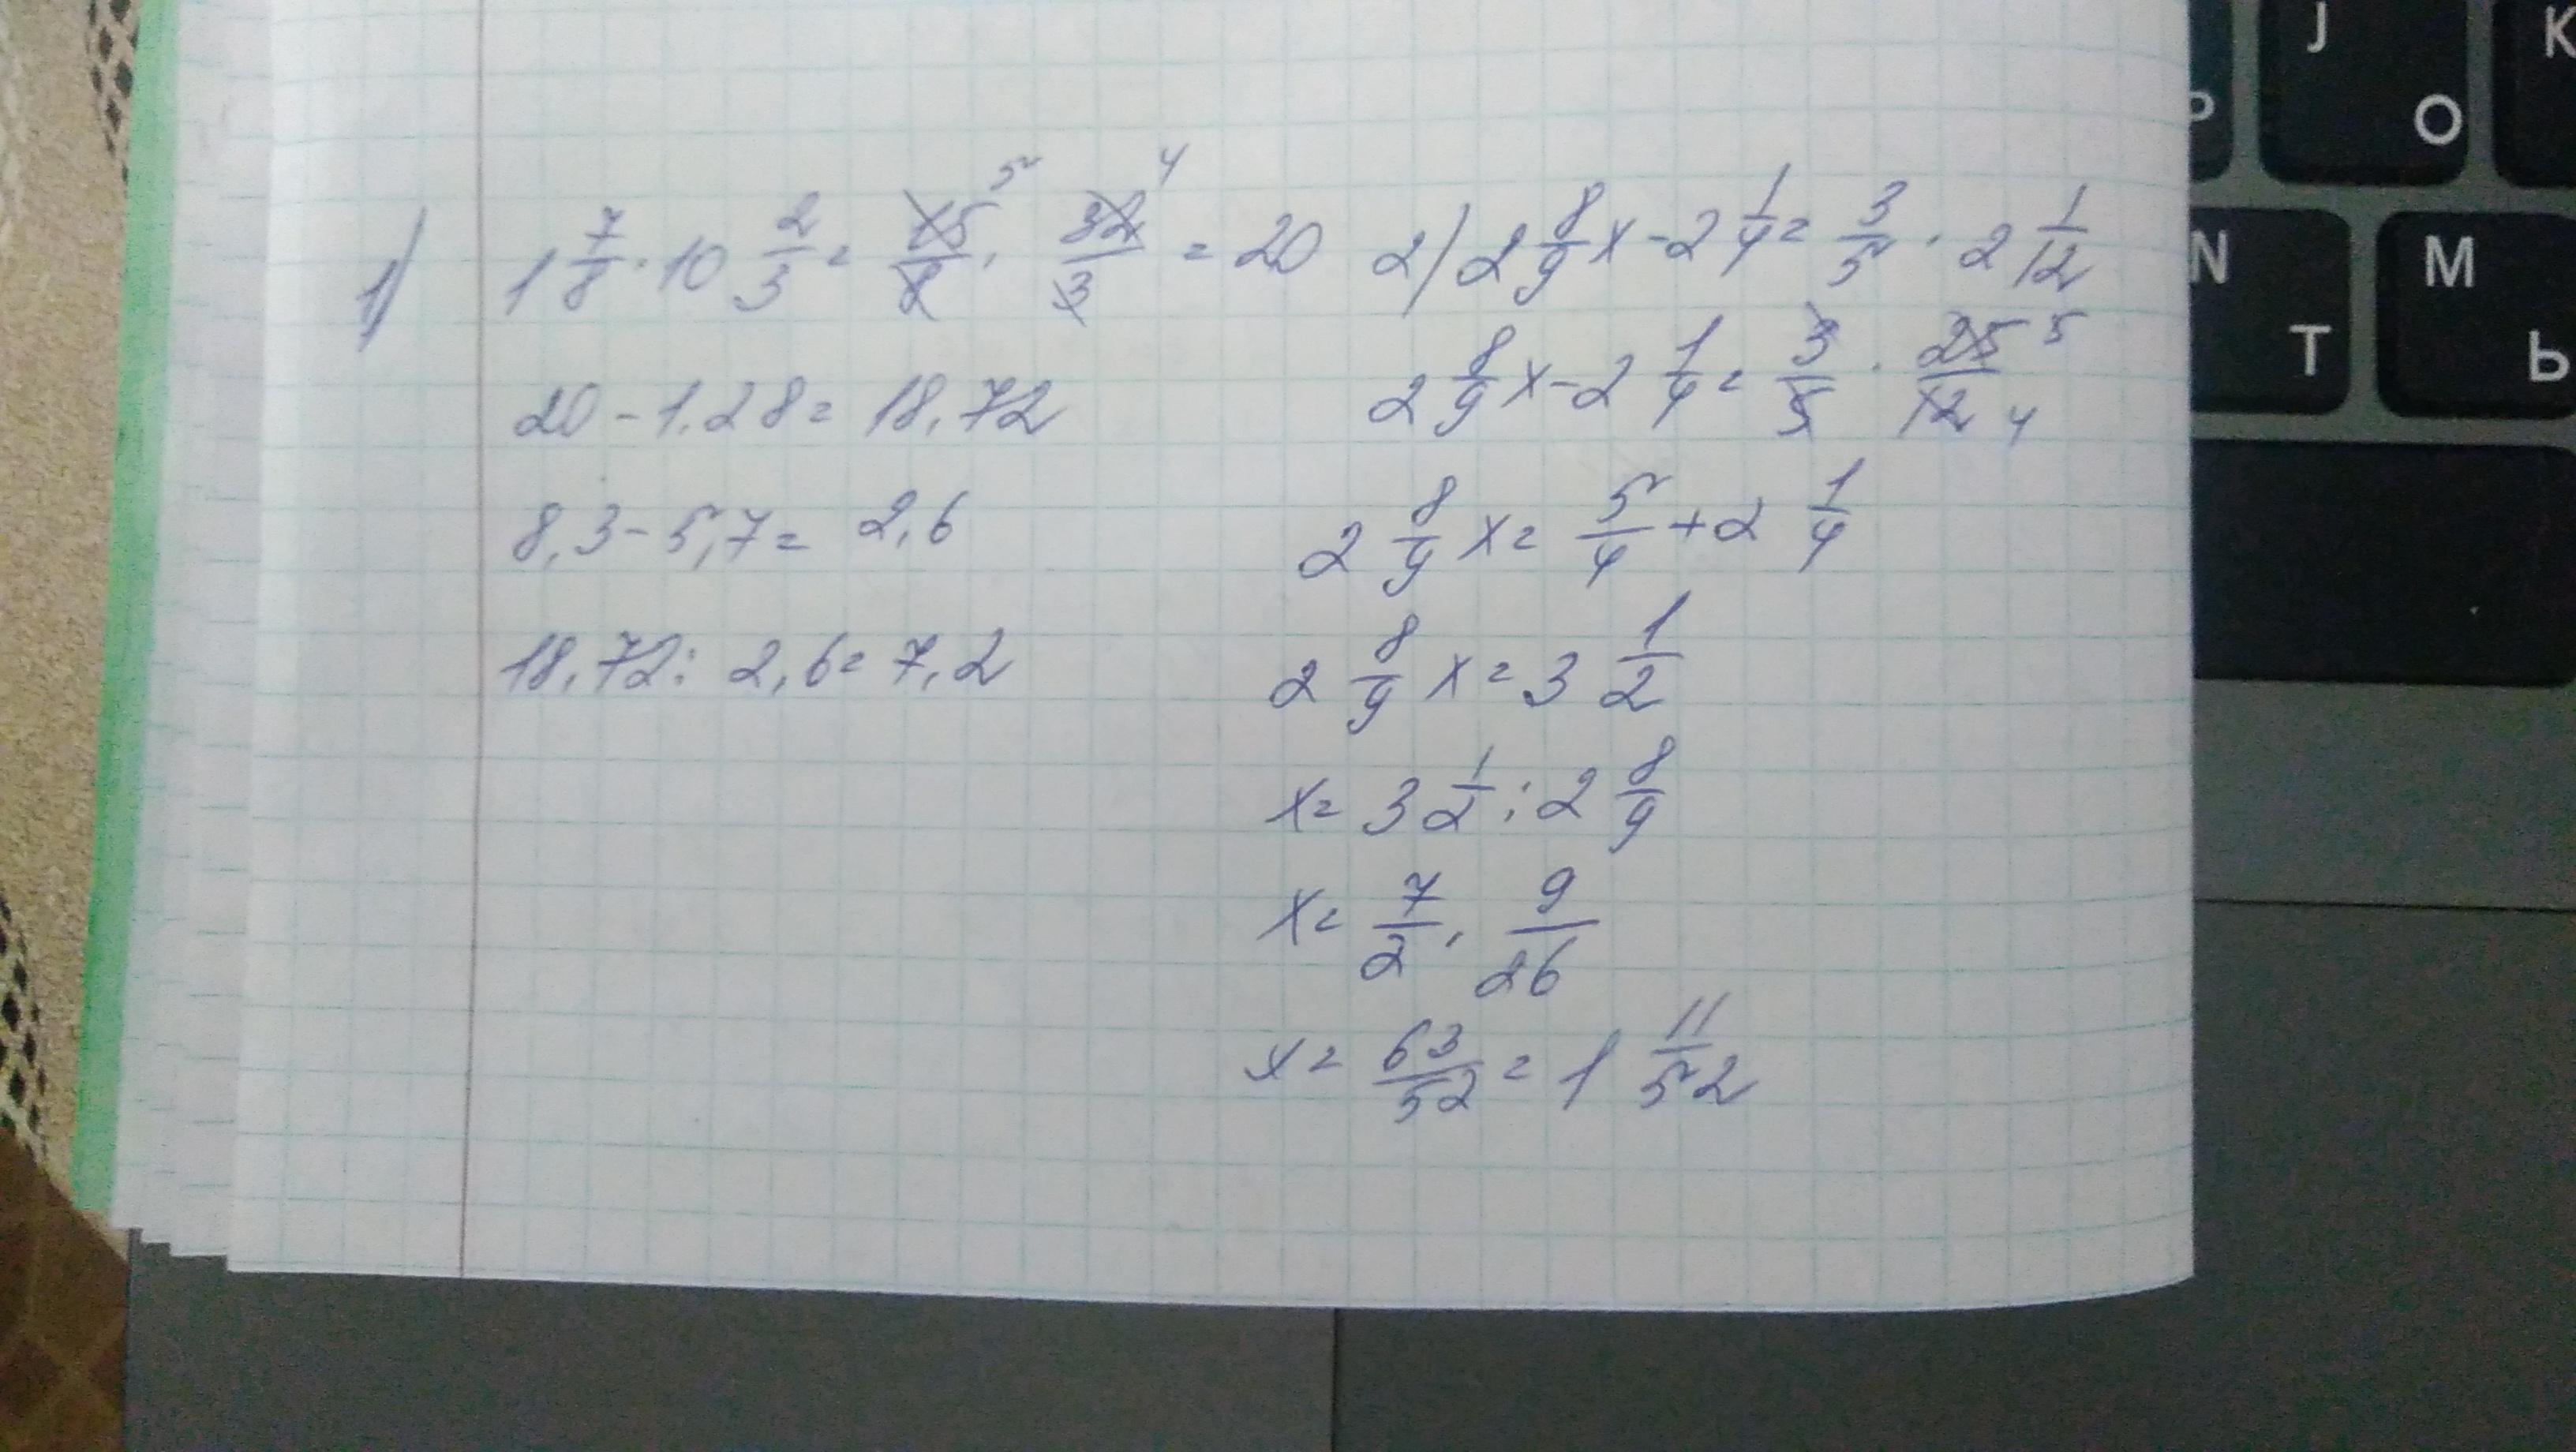 1) 1 7/8 · 10 2/3 = 15/8 5 · 32/3 4 = 20
20 - 1.28 = 18,72
8,3 - 5,7 = 2,6
18,72 : 2,6 = 7,2
2) 2 8/9 x - 2 1/4 = 3/5 · 2 1/12
2 8/9 x - 2 1/4 = 3/5 · 25/12 5 4
2 8/9 x = 5/4 + 2 1/4
2 8/9 x = 3 1/2
x = 3 1/2 : 2 8/9
x = 7/2 · 9/26
x = 63/52 = 1 11/52
J
O
K
P
N
T
M
Ь